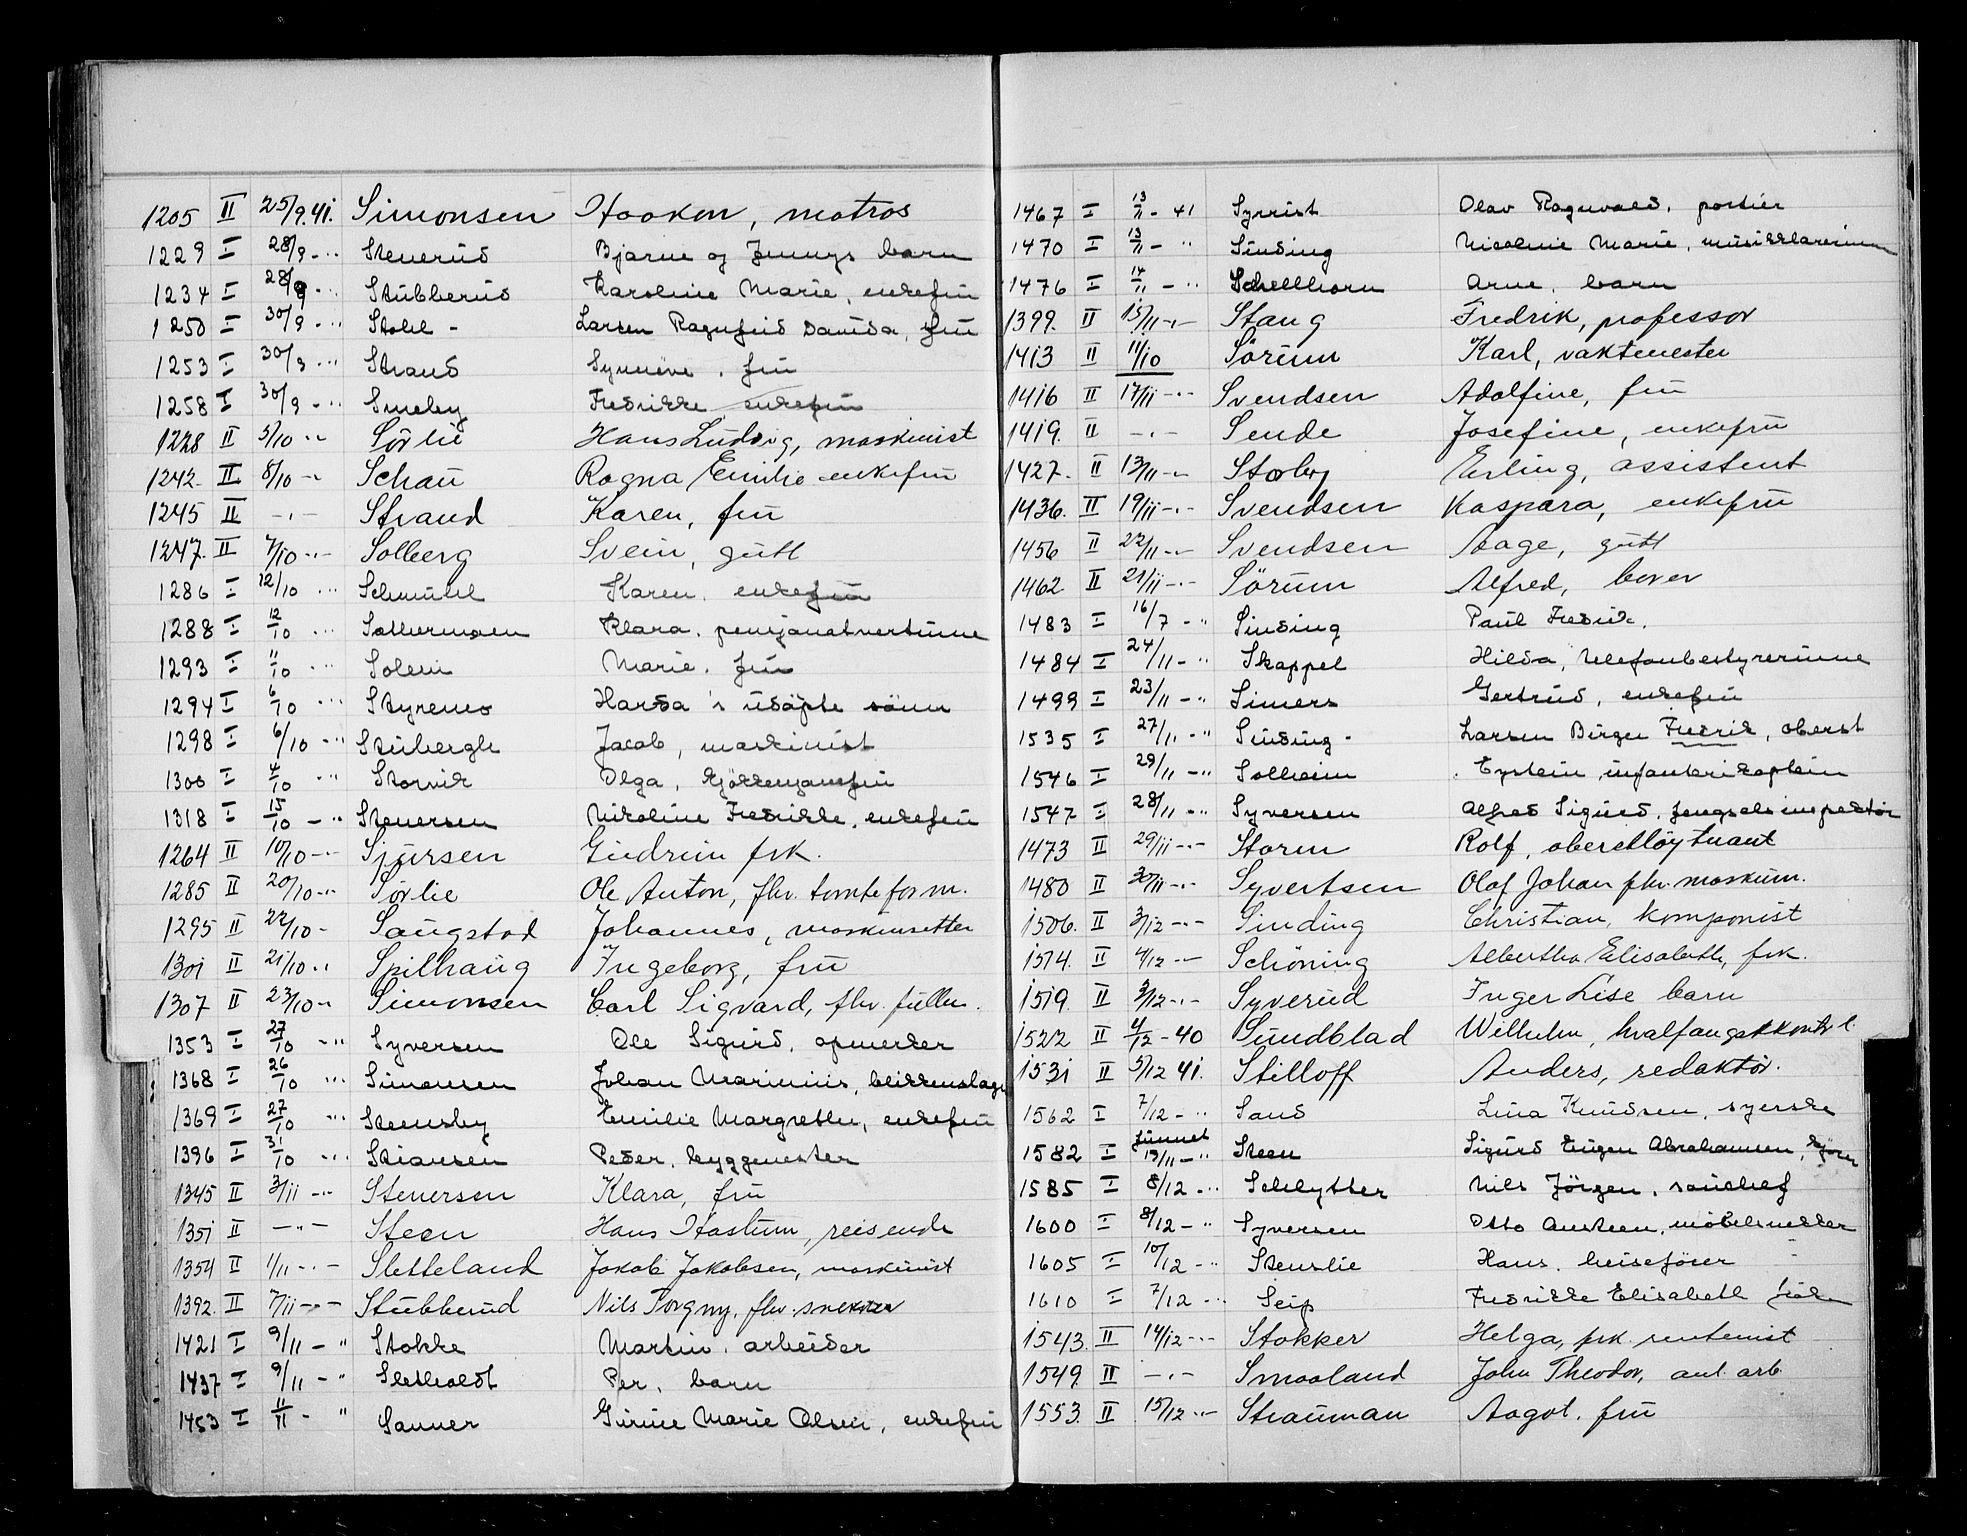 1205 II 25/9.41. Simonsen Haakon, matros
1229 I 28/9 - .. Stenerud Bjarne og Jennys barn
1234 I 28/9 - .. Stubberud Karoline Marie, enkefru
1250 I 30/9 - .. Stokl - Larsen Ragnfrid Davida, fru
1253 I 30/9 - .. Strand Synnøve, fru
1258 I 30/9 - .. Smeby Fredrikke, enkefru
1228 II 5/10 - .. Sörlie Hans Ludvig, maskinist
1242. II 8/10 - .. Schau Ragna Emilie enkefru
1245 II - . - Strand Karen, fru
1247. II 7/10 - .. Solberg Svein, gutt
1286 I 12/10 ... Schmühl Karen, enkefru
1288 I 12/10 ... Sattermoen Klara, pensjonatvertinne
1293 I 11/10 ... Solem Marie, fru
1294 I 6/10 ... Styrenes Hansa's udöpte sönn
1298 I 6/10 - .. Stubergh Jacob, maskinist
1300 I 4/10 - .. Storvik Olga, kjökkensjefru
1318 I 15/10 - .. Stenersen Nikoline Fredrikke, enkefru
1264 II 10/10 - .. Sjursen Gudrun frk.
1285 II 20/10 - .. Sörlie Ole Anton, fhv. tomteform.
1295 II 22/10 - Saugstad Johannes, maskinsetter
1301 II 21/10 .. Spilhaug Ingeborg, fru
1307 II 23/10 - Simonsen Carl Sigvard, fhv. fullm.
1353 I 27/10 - .. Syversen Ole Sigurd, opmerker
1368 I 26/10 ... Simonsen Johan Marinius, blikkenslager
1369 I 27/10 ... Steensby Emilie Margrethe, enkefru
1396 I 31/10 ... Stiansen Peder, byggmester
1345 II 3/11 - .. Stenersen Klara, fru
1351 II - " - Steen Hans Hastum, reisende
1354 II 1/11 - . - Sletteland Jakob Jakobsen, maskinist
1392. II 7/11 - . - Stubberud Nils Torgny, fhv. snekker
1421 I 9/11 - " Stokke Martin, arbeider
1437 I 9/11 - " Sletholdt Per, barn
1453 I 11/11 - " Sanner Ginne Marie Olsen, enkefru
1467 I 13/11 - 41 Syrrist Olav Ragnvald, portier
1470 I 13/11 - " Sinding Nicoline Marie, musikklærerinne
1476 I 14/11 - " Schellhorn Arne, barn
1399. II 15/11 - . - Stang Fredrik, professor
1413 II 11/10 Sörum Karl, vaktmester
1416 II 17/11 - .. Svendsen Adolfine, fru
1419. II - . - Sende Josefine, enkefru
1427. II 13/11 - .. Storby Erling, assistent
1436. II 19/11 - . - Svendsen Kaspara, enkefru
1456 II 22/11 - .. Svendsen Aage, gutt
1462 II 21/11 - . - Sörum Alfred, borer
1483 I 16/7 - " Sinding Paul Fredrik.
1484 I 24/11 - " Skappel Hilda, telefonbestyrerinne
1499 I 23/11 - " Simers Gertrud, enkefru
1535 I 27/11 - " Sinding - Larsen Birger Fredrik, oberst
1546 I 29/11 - " Solheim Eystein, infanterikaptein
1547 I 28/11 - " Syversen Alfred Sigurd, fengselsinspektör
1473 II 29/11 - . - Storm Rolf, oberstløytnant
1480 II 30/11 - .. Syvertsen Olaf Johan fhv. maskinm.
1506. II 3/12 - . - Sinding Christian, komponist
1514. II 4/12 - .. Schöning Albertha Elisabeth, frk.
1519. II 3/12 - . - Syverud Inger Lise barn
1522 II 4/12 - 40 Sundblad Wilhelm, hvalfangstkontrol.
1531 II 5/12 41. Stilloff Anders, redaktör.
1562 I 7/12 - " Sand Lina Knudsen, syerske
1582 I funnet 19/11 - " Steen Sigurd Eugen Abrahamsen,
1585 I 8/12 - .. Schlytter Nils Jörgen, souschef
1600 I 8/12 - " Syversen Otto Austeen, möbelsnekker
1605 I 10/12 - .. Stenslie Hans, heisefører
1610 I 7/12 - .. Seip Fredrikke Elisabeth
1543. II 14/12 - .. Stokker Helga, frk. rentenist
1549. II - . - Smaaland John Theodor, anl. arb
1553. II 15/12 - .. Strauman Aagot, fru